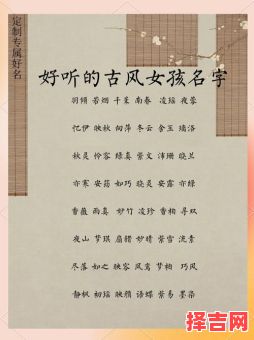 定制专属好名
好听的古风女孩名字
羽倾 若烟 千柔 南春 凌瑶 夜蓉
忆伊 映秋 向萍 冬云 含玉 璃洛
秋灵 怜容 绿真 紫文 沛珊 晓兰
亦寒 安荷 如巧 晓灵 安露 亦绿
香薇 雨真 妙竹 凌珍 香柏 寻双
夜山 梦琪 眉翎 妙晴 紫雪 流素
尽落 如之 映容 凤鸾 梦柏 巧风
静枫 初瑶 映颜 语蝶 紫易 墨染
择吉网